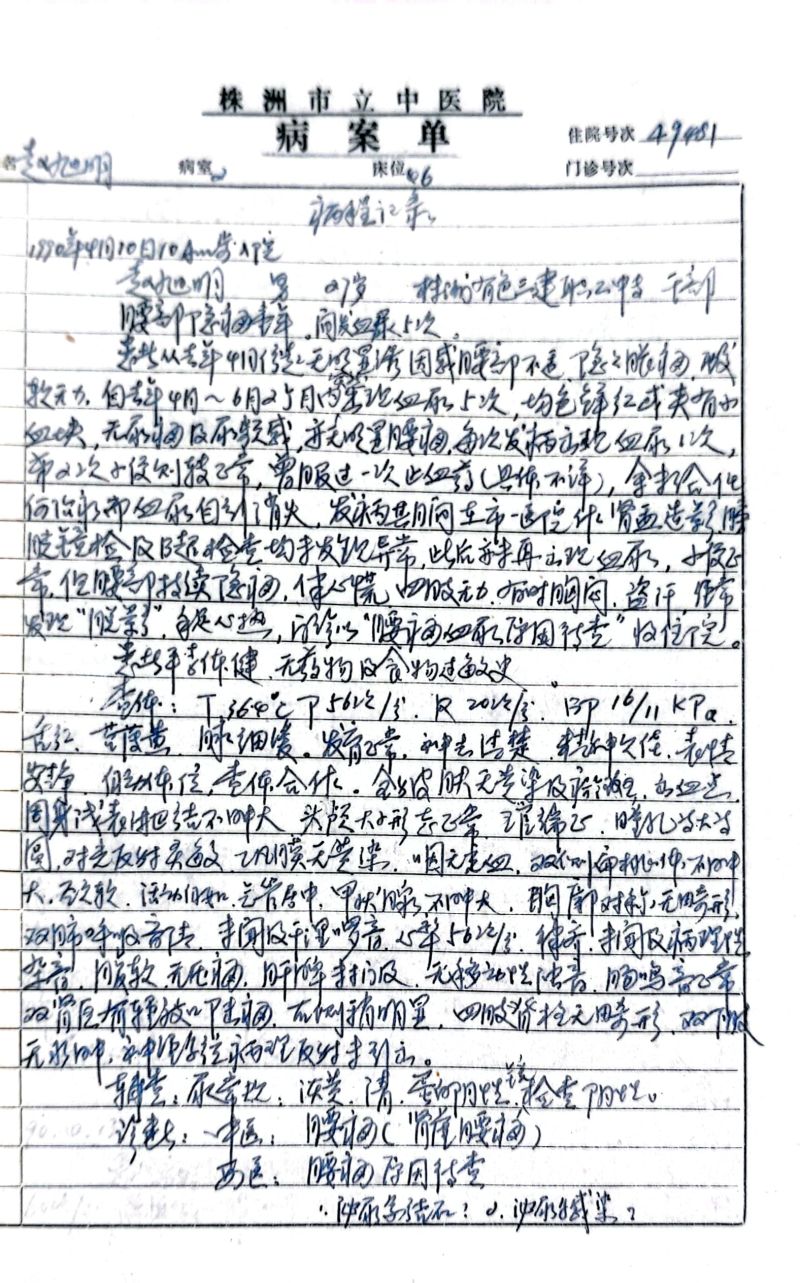 株洲市立中医院
病案单
住院号次 49481
名 赵旭明 病室 床位 46 门诊号次
病程记录
1990年4月10日10Am 入院
赵旭明 男 27岁 株洲有色三建职工中专 干部
腰部隐痛壹年,间发血尿5次。
患者从去年4月份起无明显诱因感腰部不适,隐隐胀痛,酸
软无力,自去年4月~6月2个月内出现血尿5次,均色鲜红或夹有小
血块,无尿痛及尿频感,亦无明显腰痛,每次发病出现血尿1次,
第2次小便则转正常,曾服过一次止血药(具体不详),余未作任
何治疗而血尿自行消失,发病其间在市一医院作肾盂造影、膀
胱镜检及B超检查均未发现异常,此后亦未再出现血尿,小便正
常,但腰部持续隐痛,伴心慌,四肢无力,有时胸闷,盗汗,经常
发现“脱影”,手足心热,门诊以“腰痛血尿原因待查”收住院。
患者平素体健,无药物及食物过敏史。
查体:T 36.4℃ P 56次/分 R 20次/分 BP 16/11 KPa
舌红,苔薄黄,脉细缓。发育正常,神志清楚,精神欠佳,表情
安静,自动体位,查体合作。全身皮肤无黄染及瘀斑、出血点,
周身浅表淋巴结不肿大,头颅大小形态正常,五官端正,瞳孔等大等
圆,对光反射灵敏,巩膜无黄染,咽无充血,双侧扁桃体不肿
大,颈软,活动自如,气管居中,甲状腺不肿大,胸廓对称,无畸形,
双肺呼吸音清,未闻及干湿啰音,心率56次/分,律齐,未闻及病理性
杂音,腹软,无压痛,肝脾未扪及,无移动性浊音,肠鸣音正常
双肾区有轻微叩击痛,右侧稍明显,四肢脊柱无畸形,双下肢
无水肿,神经系统病理反射未引出。
辅查:尿常规:淡黄,清,蛋白阴性,镜检查阴性。
诊断:中医:腰痛(肾虚腰痛)
西医:腰痛原因待查
1.泌尿系结石?2.泌尿系感染?